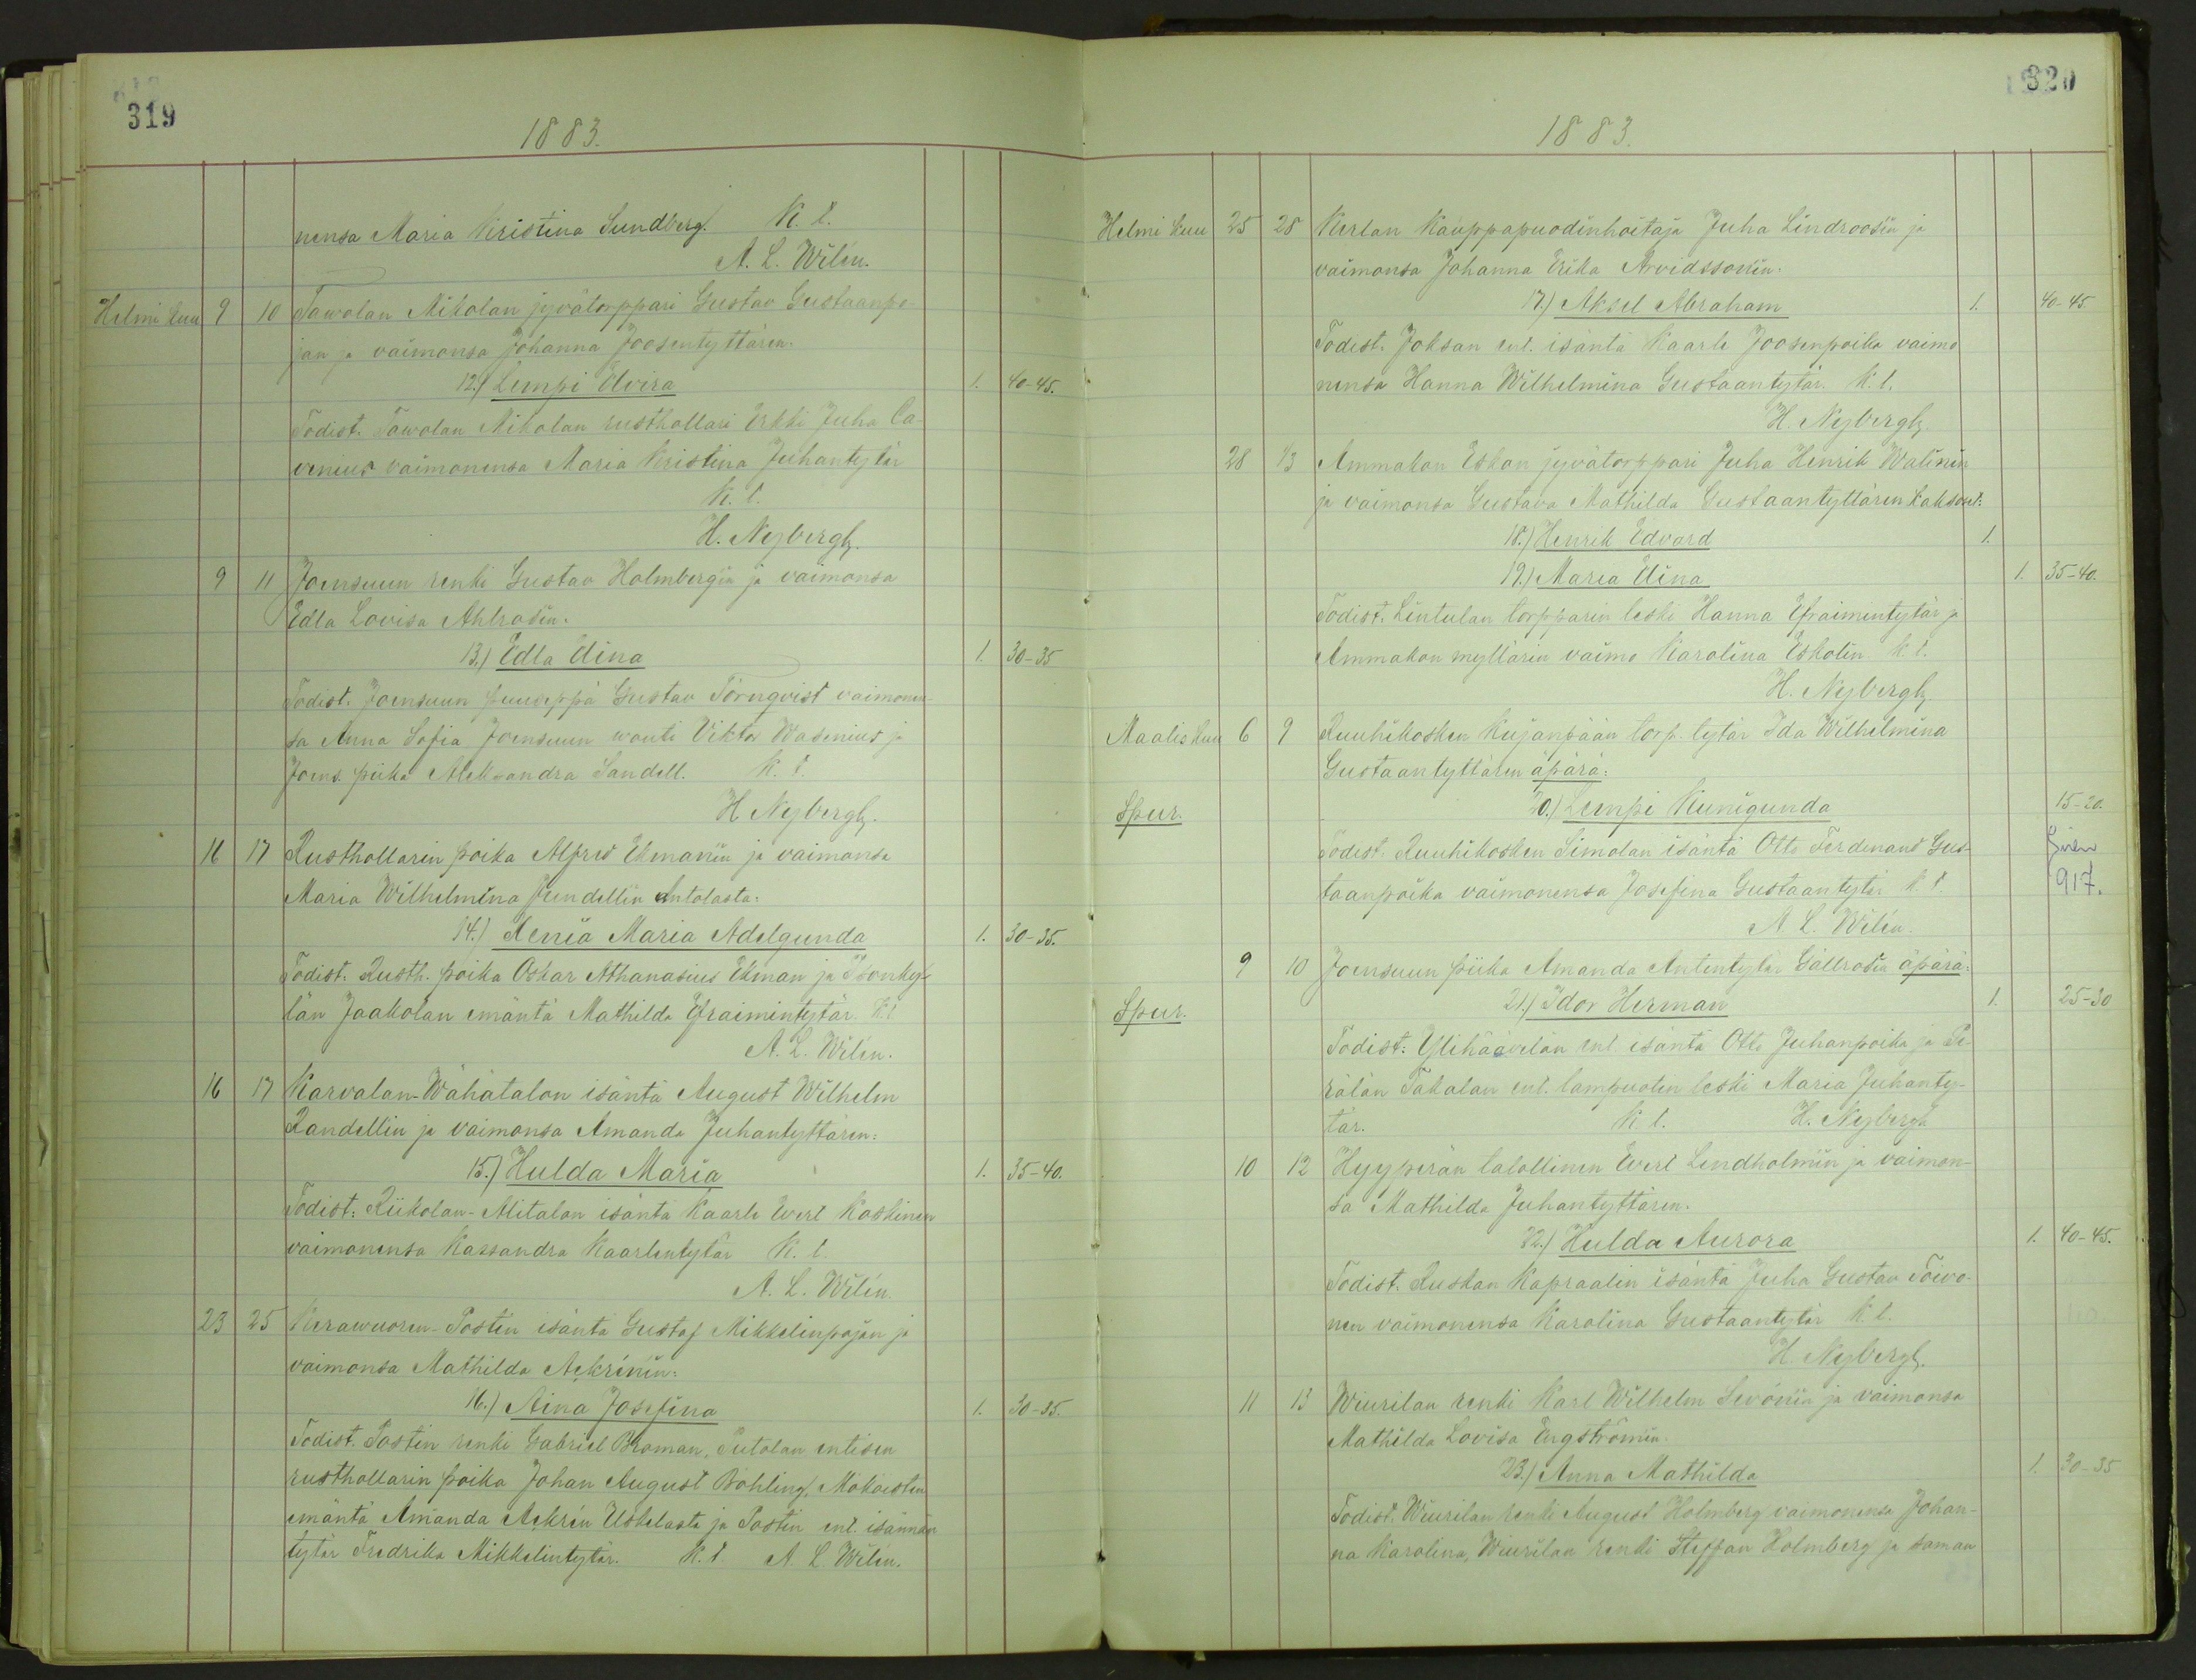 319
1883.
nensa Maria Kristina Sundberg. K. l.
A. L. Wilén.
Helmi kuu 9 10 Tawolan Mikolan jyvätorppari Gustav Gustaanpo-
jan ja vaimonsa Johanna Joosentyttären.
12.) Lempi Elvira 1. 40-45.
Todist. Tawolan Mikolan rusthollari Erkki Juha Ca-
venius vaimonensa Maria Kristina Juhantytär
K. l.
H. Nybergh.
9 11 Joensuun renki Gustav Holmbergin ja vaimonsa
Edla Lovisa Ahlrosin.
13.) Edla Elina 1. 30-35
Todist. Joensuun puuseppä Gustav Törnqvist vaimonen-
sa Anna Sofia Joensuun wouti Viktor Wasenius ja
Joens. piika Aleksandra Sandell. K. l.
H. Nybergh.
16 17 Rusthollarin poika Alfred Ekmanin ja vaimonsa
Maria Wilhelmina Jundellin Antolasta:
14.) Xenia Maria Adelgunda 1. 30-35.
Todist. Rusth. poika Oskar Athanasius Ekman ja Isonky-
län Jaakolan emäntä Mathilda Efraimintytär. K. l.
A. L. Wilén.
16 17 Karvalan-Wähätalon isäntä August Wilhelm
Randellin ja vaimonsa Amanda Juhantyttären:
15.) Hulda Maria 1. 35-40.
Todist: Riikolan-Alitalon isäntä Kaarle Evert Koskinen
vaimonensa Kassandra Kaarlentytär K. l.
A. L. Wilén.
23 25 Kerawuoren-Postin isäntä Gustaf Mikkelinpojan ja
vaimonsa Mathilda Ackrénin:
16.) Aina Josefina 1. 30-35.
Todist. Postin renki Gabriel Broman, Putolan entisen
rusthollarin poika Johan August Böhling, Mokoisten
emäntä Amanda Ackrén Uskelasta ja Postin ent. isännän
tytär Fredrika Mikkelintytär. K. l. A. L. Wilén.
320
1883.
Helmi kuu 25 28 Kerlan Kauppapuodinhoitaja Juha Lindroosin ja
vaimonsa Johanna Erika Arvidssonin.
17.) Aksel Abraham 1. 40-45.
Todist. Joksan ent. isäntä Kaarle Joosenpoika vaimo
nensa Hanna Wilhelmina Gustaantytär. K. l.
H. Nybergh.
28 1/3 Ammakon Eskon jyvätorppari Juha Henrik Walinin
ja vaimonsa Gustava Mathilda Gustaantyttären kaksoset:
18.) Henrik Edvard 1.
19.) Maria Elina 1. 35-40.
Todist. Lintulan torpparin leski Hanna Efraimentytär ja
Ammakon myllärin vaimo Karolina Eskolin K. l.
H. Nybergh
Maalis kuu 6 9 Ruuhikosken Kujanpään torp. tytär Ida Wilhelmina
Gustaantyttären äpärä:
Spur. 20.) Lempi Kunigunda 15-20.
Todist. Ruuhikosken Simolan isäntä Otto Ferdinand Gus-
taanpoika vaimonensa Josefina Gustaantytär K. l. 917.
A. L. Wilén.
9 10 Joensuun piika Amanda Antentytär Gällrosin äpärä:
Spur. 21.) Idor Herman 1. 25-30
Todist: Ylihäävelän ent. isäntä Otto Juhanpoika ja Pe-
rälän Takalan ent. lampuotin leski Maria Juhanty-
tär. K. l. H. Nybergh
10 12 Hyyperän talollinen Evert Lindholmin ja vaimon-
sa Mathilda Juhantyttären.
22.) Hulda Aurora 1. 40-45.
Todist. Ruskan Kapraalin isäntä Juha Gustav Toivo-
nen vaimonensa Karolina Gustaantytär K. l.
H. Nybergh.
11 13 Wiurilan renki Karl Wilhelm Levónin ja vaimonsa
Mathilda Lovisa Engströmin.
23.) Anna Mathilda 1. 30-35
Todist. Wiurilan renki August Holmberg vaimonensa Johan-
na Karolina, Wiurilan renki Steffan Holmberg ja saman